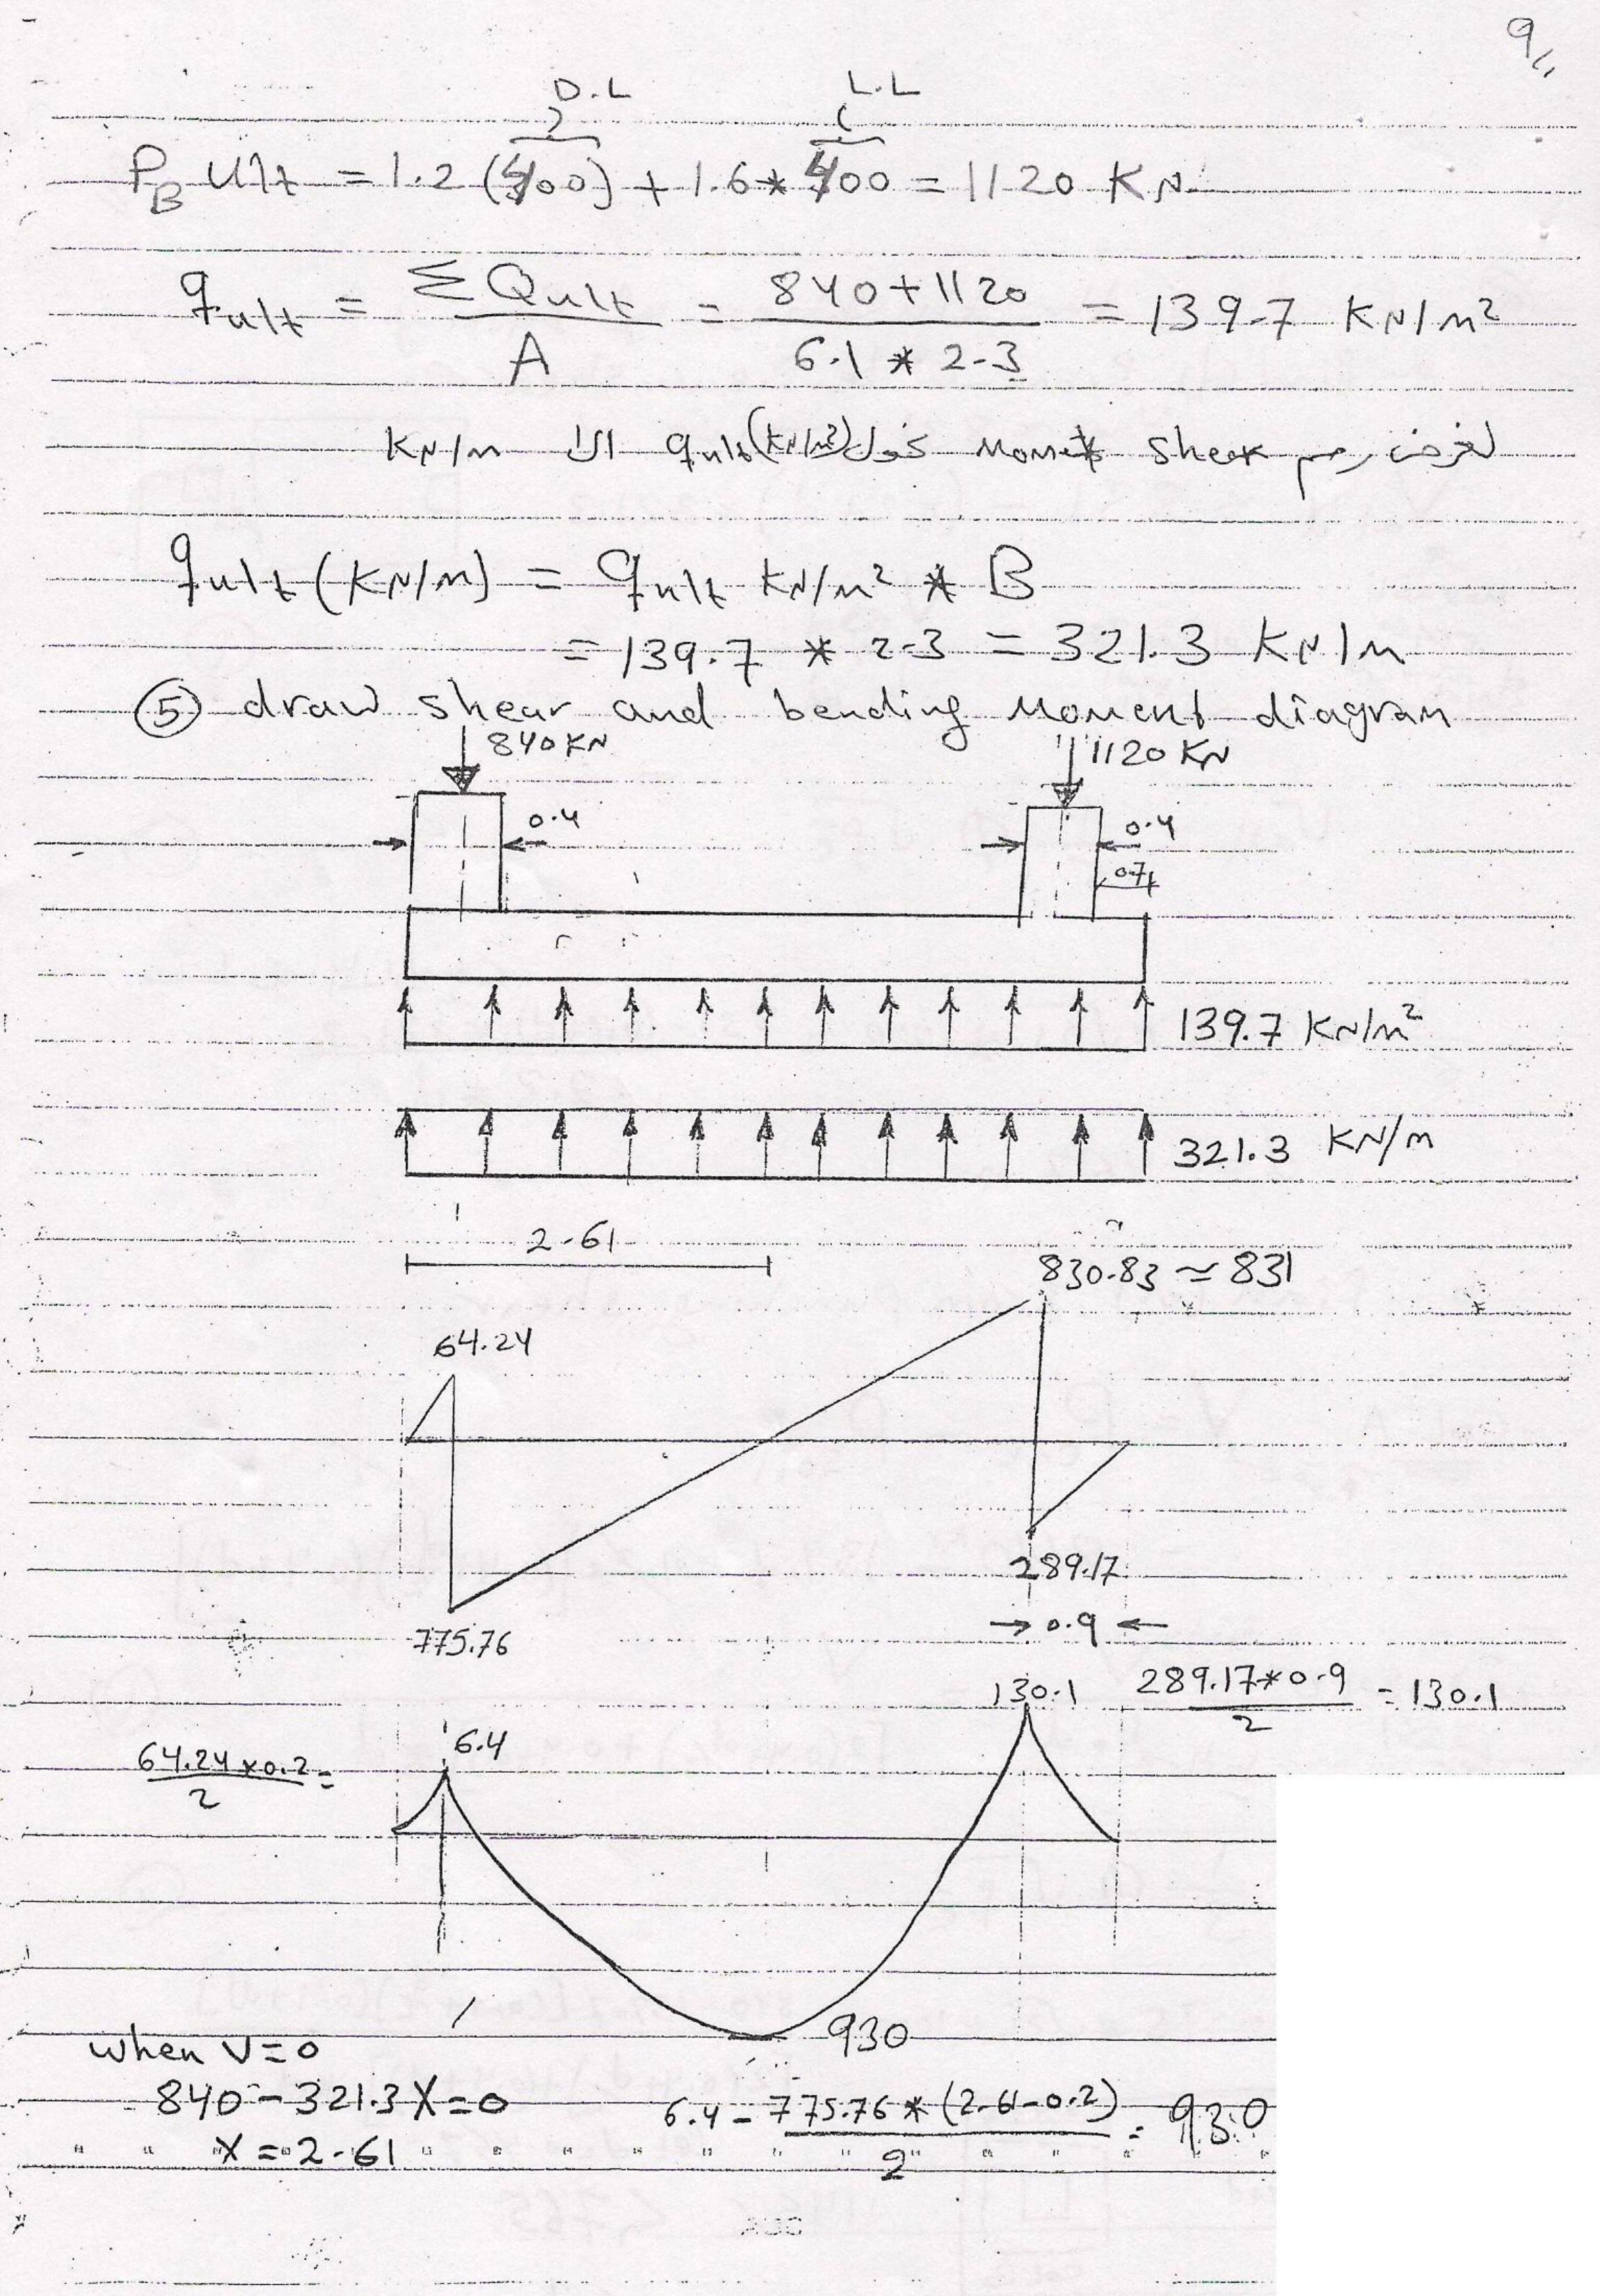 9
D.L L.L
P_B ult = 1.2 (400) + 1.6 * 400 = 1120 KN
q_ult = ΣQult / A = 840+1120 / 6.1 * 2.3 = 139.7 KN/m²
لغرض رسم shear moment نحول qult (kN/m²) الى KN/m
qult (KN/m) = qult KN/m² * B
= 139.7 * 2.3 = 321.3 KN/m
⑤ draw shear and bending moment diagram
840 KN 1120 KN
0.4 0.4
0.7
139.7 KN/m²
321.3 KN/m
2.61
830.83 ≃ 831
64.24
289.17
775.76 0.9
130.1 289.17*0.9 / 2 = 130.1
6.4
64.24 x 0.2 / 2 =
930
when V=0
840 - 321.3 X = 0
6.4 - 775.76 * (2.61-0.2) / 2 = 930
X = 2.61